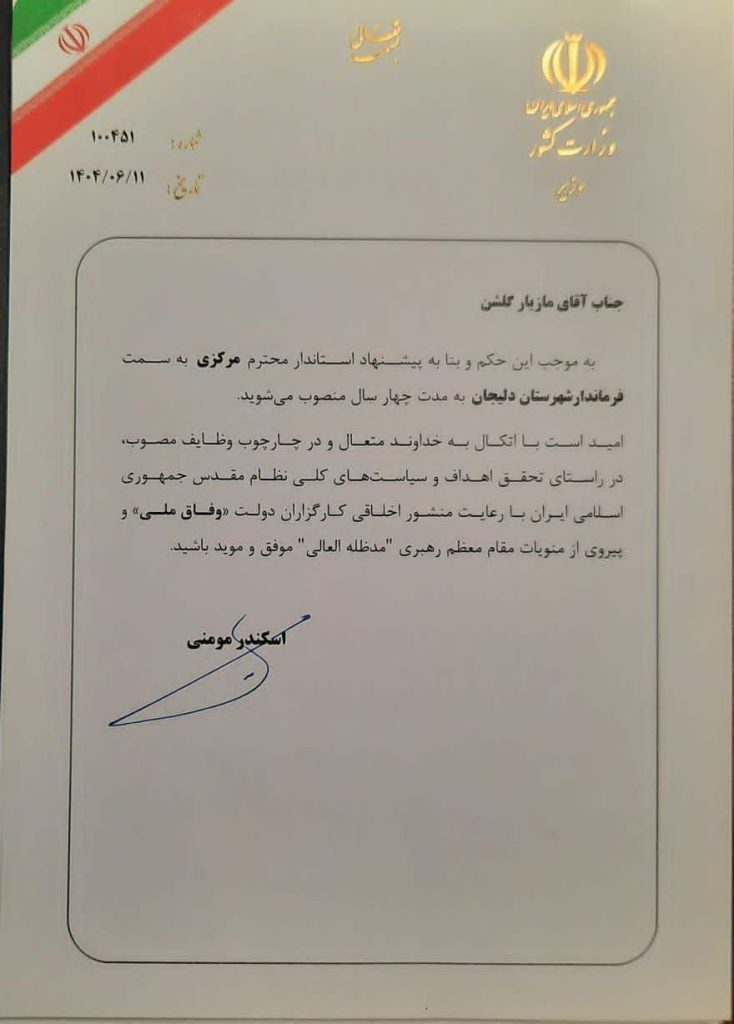 بسمه تعالی
جمهوری اسلامی ایران
وزارت کشور
وزیر
شماره: ۱۰۰۴۵۱
تاریخ: ۱۴۰۴/۰۶/۱۱
جناب آقای مازیار گلشن
به موجب این حکم و بنا به پیشنهاد استاندار محترم مرکزی به سمت
فرماندارشهرستان دلیجان به مدت چهار سال منصوب می‌شوید.
امید است با اتکال به خداوند متعال و در چارچوب وظایف مصوب،
در راستای تحقق اهداف و سیاست‌های کلی نظام مقدس جمهوری
اسلامی ایران با رعایت منشور اخلاقی کارگزاران دولت «وفاق ملی» و
پیروی از منویات مقام معظم رهبری "مدظله العالی" موفق و موید باشید.
اسکندر مومنی